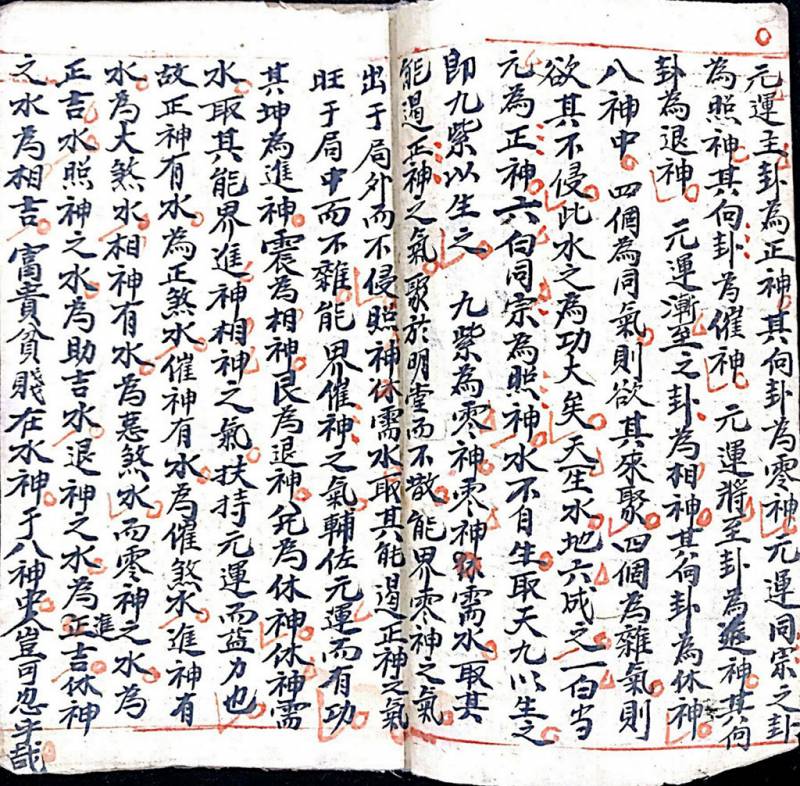 元運主卦為正神其向卦為零神元運同宗之卦
為照神其向卦為催神　元運將至卦為進神其向
卦為退神　元運漸至之卦為相神其向卦為休神
八神中四個為同氣則欲其來聚四個為雜氣則
欲其不侵此水之為功大矣天一生水地六成之一白當
元為正神六白同宗為照神水不自生取天九以生之
即九紫以生之　九紫為零神零神需水取其
能遏正神之氣聚於明堂而不散能界零神之氣
出于局外而不侵照神休需水取其能遏正神之氣
旺于局中而不雜能界催神之氣輔佐元運而有功
其坤為進神震為相神艮為退神兌為休神休神需
水取其能界進神相神之氣扶持元運而益力也
故正神有水為正煞水催神有水為催煞水進神有
水為大煞水相神有水為惡煞水而零神之水為
正吉水照神之水為助吉水退神之水為進吉休神
之水為相吉富貴貧賤在水神于八神中豈可忽乎哉